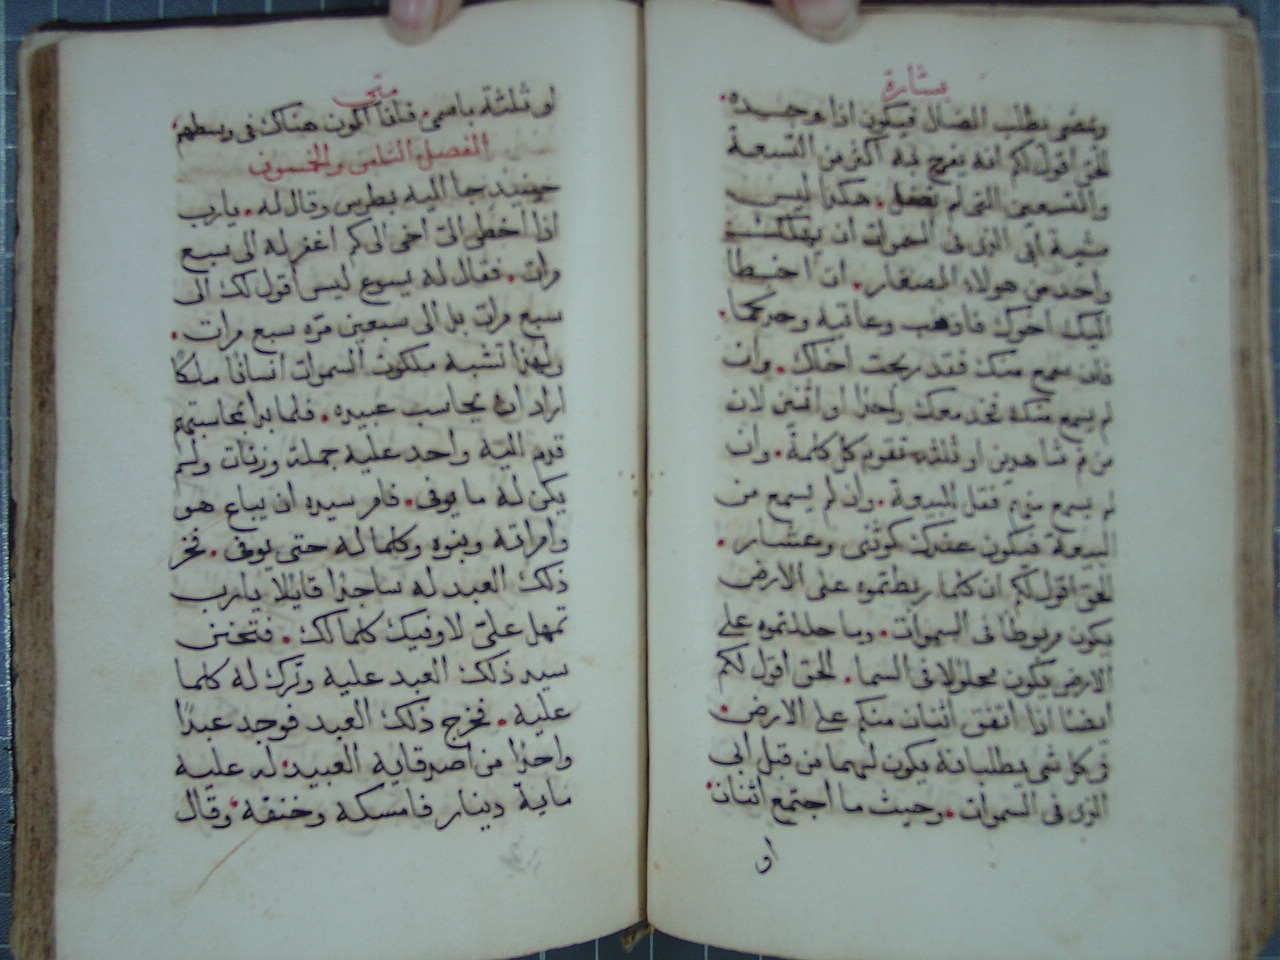 بشارة
ويمضى يطلب الضال فيكون اذا وجده
الحق اقول لكم انه يفرح به اكثر من التسعة
والتسعين التى لم تضل. هكذا ليس
مشية ابى الذى فى السموات ان يهلك
واحد من هولاء الصغار. ان اخطا
اليك اخوك فاذهب وعاتبه وحدكما.
فان سمع منك فقد ربحت اخاك. وان
لم يسمع منك فخذ معك واحدًا او اثنين لان
من فم شاهدين او ثلثه تقوم كل كلمة. وان
لم يسمع منهم فقل للبيعة. وان لم يسمع من
البيعة فيكون عندك كوثنى وعشار.
الحق اقول لكم ان كلما ربطتموه على الارض
يكون مربوطًا فى السموات. وما حللتموه على
الارض يكون محلولا فى السما. الحق اقول لكم
ايضًا اذا اتفق اثنان منكم على الارض
فى كل شى يطلبانه يكون لهما من قبل ابى
الذى فى السموات. وحيث ما اجتمع اثنان
او
متى
او ثلثة باسمى فانا اكون هناك فى وسطهم
الفصل الثامن والخمسون
حينيذ جا اليه بطرس وقال له. يارب
اذا اخطى الىّ اخى الى كم اغفر له الى سبع
مرات. فقال له يسوع ليس اقول لك الى
سبع مرات بل الى سبعين مرّه سبع مرات.
ولهذا تشبه ملكوت السموات انسانًا ملكًا
اراد ان يحاسب عبيده. فلما بدا بمحاسبتهم
قدم اليه واحد عليه جملة وزنات ولم
يكن له ما يوفى. فامر سيده ان يباع هو
وامراته وبنوه وكلما له حتى يوفى. فخر
ذلك العبد له ساجدًا قايلًا يارب
تمهل علىّ لاوفيك كلما لك. فتحنن
سيد ذلك العبد عليه وترك له كلما
عليه. فخرج ذلك العبد فوجد عبدًا
واحدًا من اصدقايه العبيد له عليه
ماية دينار فامسكه وخنقه وقال